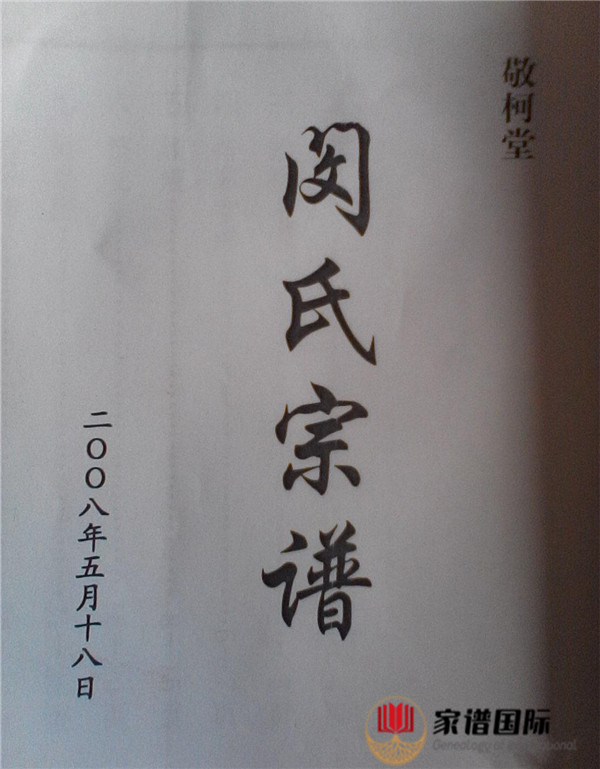 敬柯堂
闵氏宗谱
二〇〇八年五月十八日
家谱国际
Genealogy of International